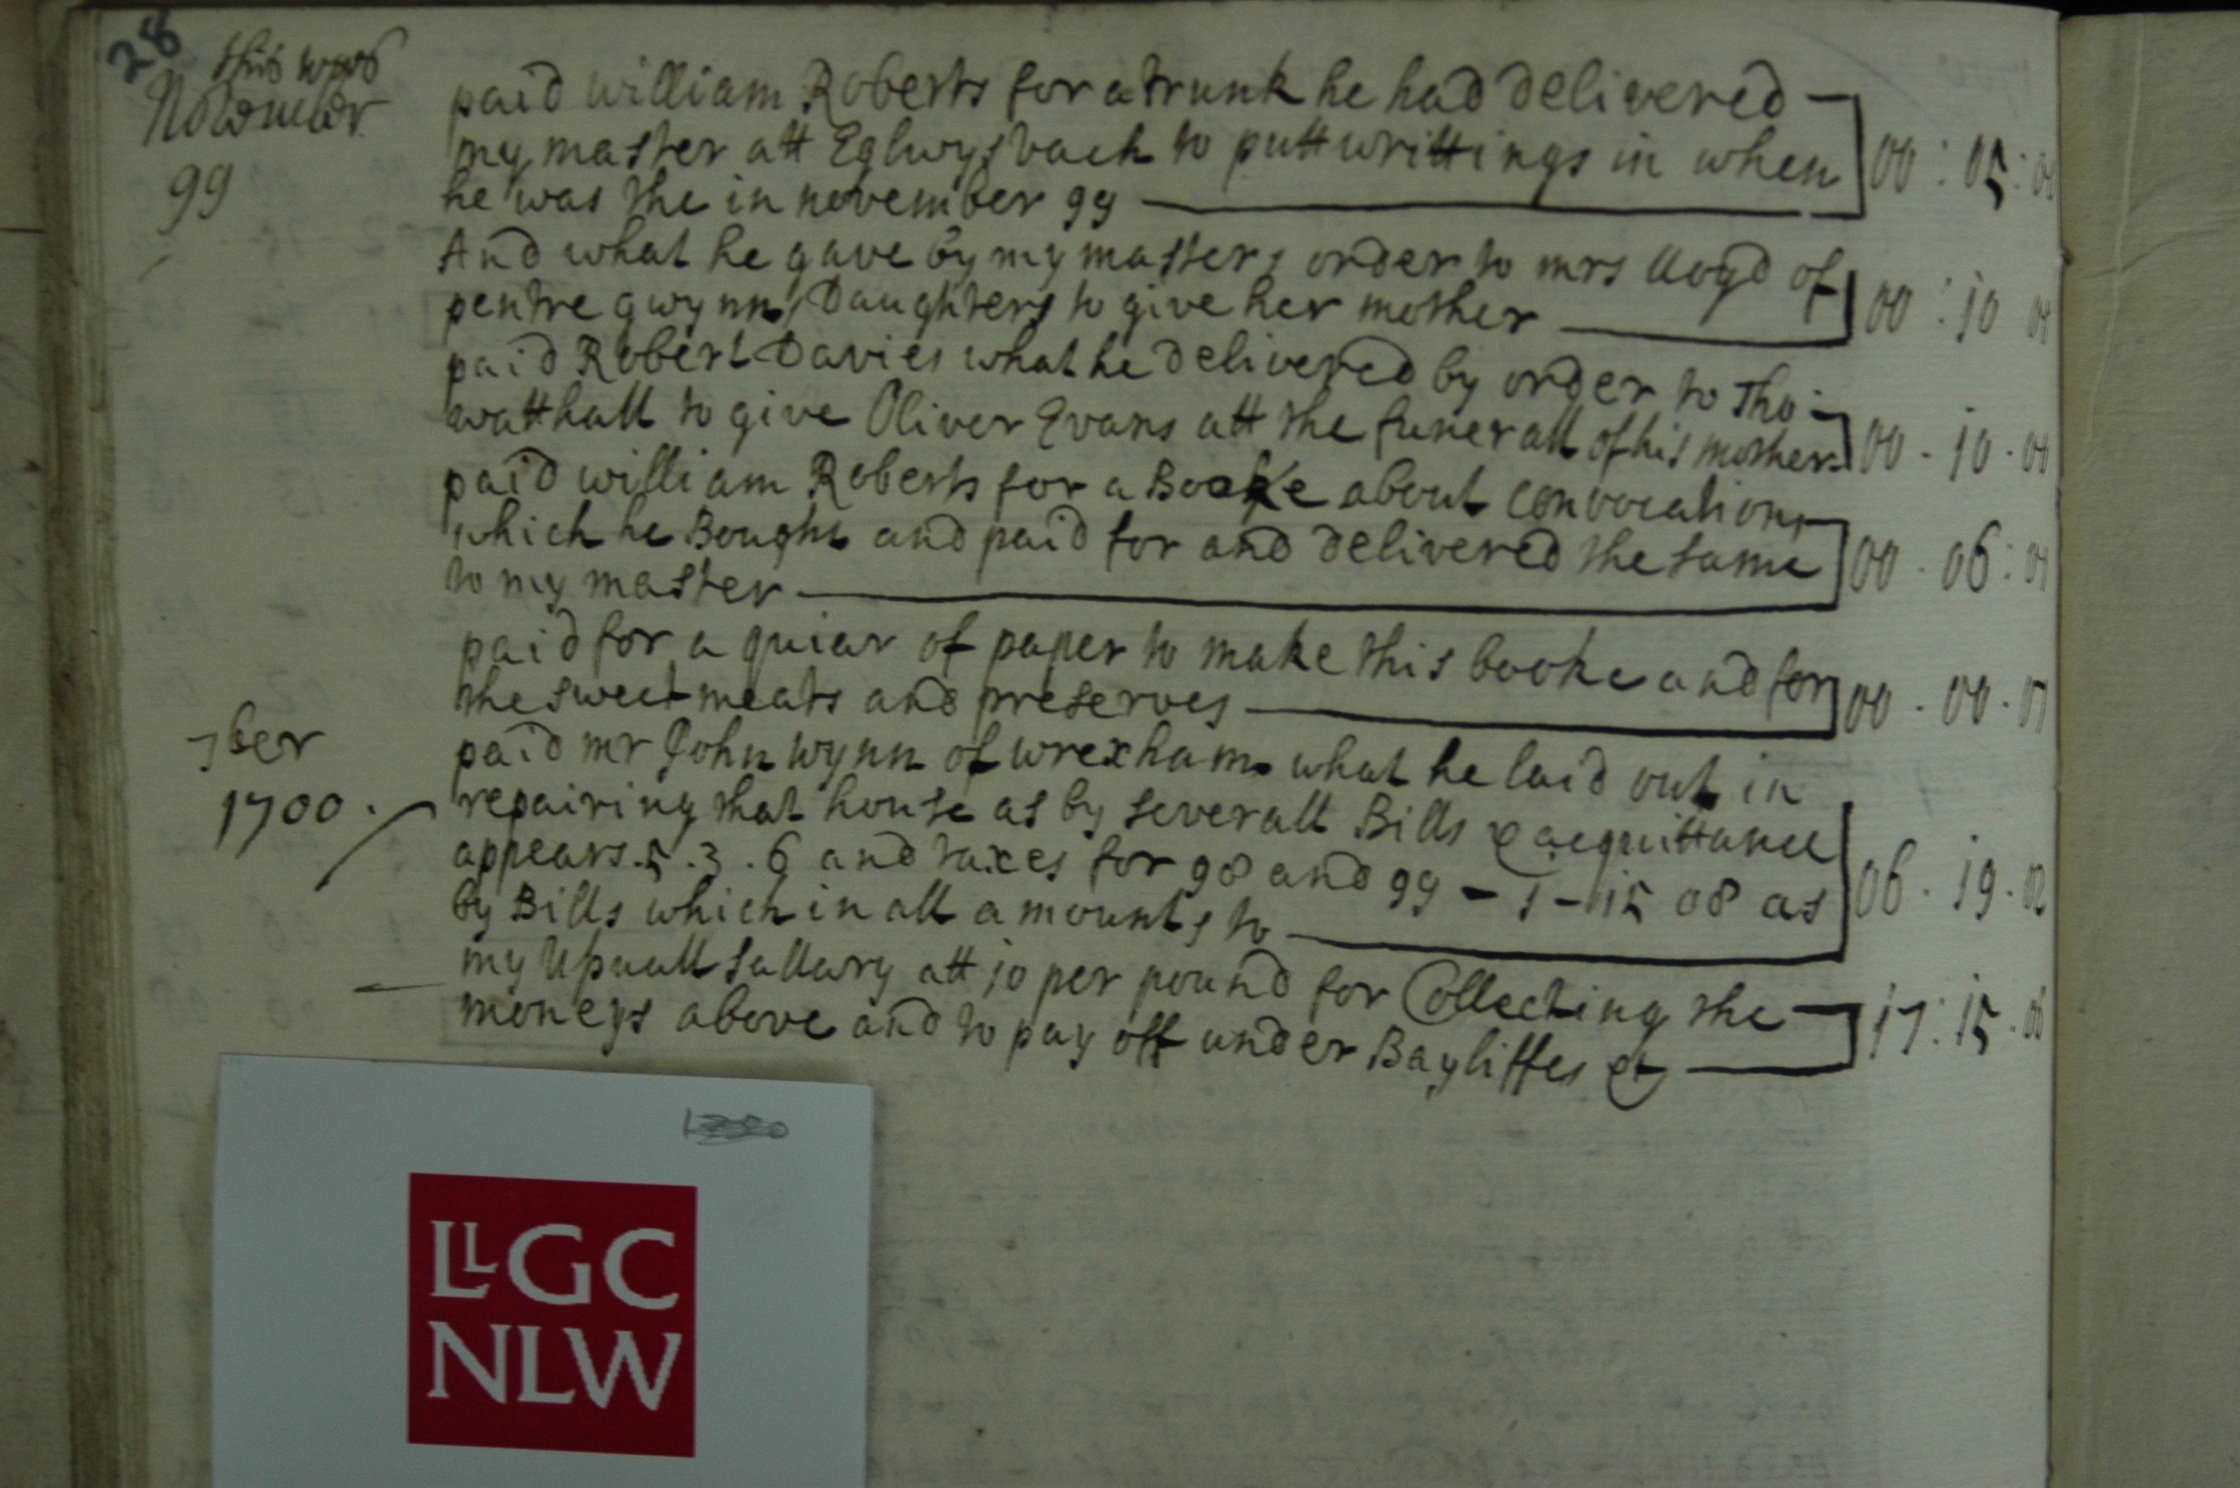 28
this was
November
99
paid william Roberts for a trunk he had delivered
my master att Eglwysvach to putt writtings in when
he was the in november 99
00 : 05 : 00
And what he gave by my masters order to mrs lloyd of
pentre gwynns Daughters to give her mother
00 : 10 00
paid Robert Davies what he delivered by order to Tho:
watthall to give Oliver Evans att the funerall of his mother
00 - 10 - 00
paid william Roberts for a Booke about convocations
which he Bought and paid for and delivered the same
to my master
00 - 06 : 00
paid for a quiar of paper to make this booke and for
the sweetmeats and preserves
00 - 00 - 07
7ber
1700
paid mr John wynn of wrexham what he laid out in
repairing that house as by severall Bills & acquittance
appears . 5 . 3 . 6 and taxes for 98 and 99 - 1 - 15 08 as
by Bills which in all amounts to
06 - 19 - 02
my Usuall sallary att 10 per pound for Collecting the
moneys above and to pay off under Bayliffes &c
17 : 15 - 06
LLGC
NLW